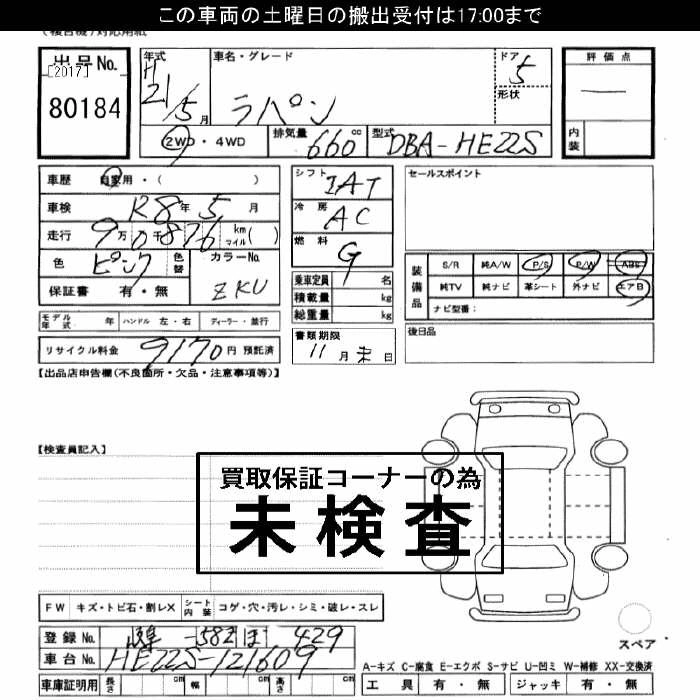 この車両の土曜日の搬出受付は17:00まで
(複合機)対応用紙
出品No.
[2017]
80184
年式 H21/5月
車名・グレード
ラパン
ドア 5
形状
評価点
―
内装
2WD・4WD
排気量 660cc
型式 DBA-HE22S
車歴 自家用・( )
車検 R8年5月
走行 9万0千876 km マイル( )
色 ピンク 色替
カラーNo. ZKU
保証書 有・無
シフト IAT
冷房 AC
燃料 G
乗車定員 名
積載量 kg
総重量 kg
セールスポイント
装備品
S/R 純A/W P/S P/W ABS
純TV 純ナビ 革シート 外ナビ エアB
ナビ型番:
モデル年式 年 ハンドル 左・右 ディーラー・並行
書類期限
11月末日
後日品
リサイクル料金 9170円 預託済
【出品店申告欄(不良箇所・欠品・注意事項等)】
【検査員記入】
買取保証コーナーの為
未検査
FW キズ・トビ石・割レX シート内装 コゲ・穴・汚レ・シミ・破レ・スレ
スペア
登録No. 582 ほ 429
車台No. HE22S-121609
A-キズ C-腐食 E-エクボ S-サビ U-凹ミ W-補修 XX-交換済
車庫証明用 長さ cm 幅 cm 高さ cm
工具 有・無 ジャッキ 有・無